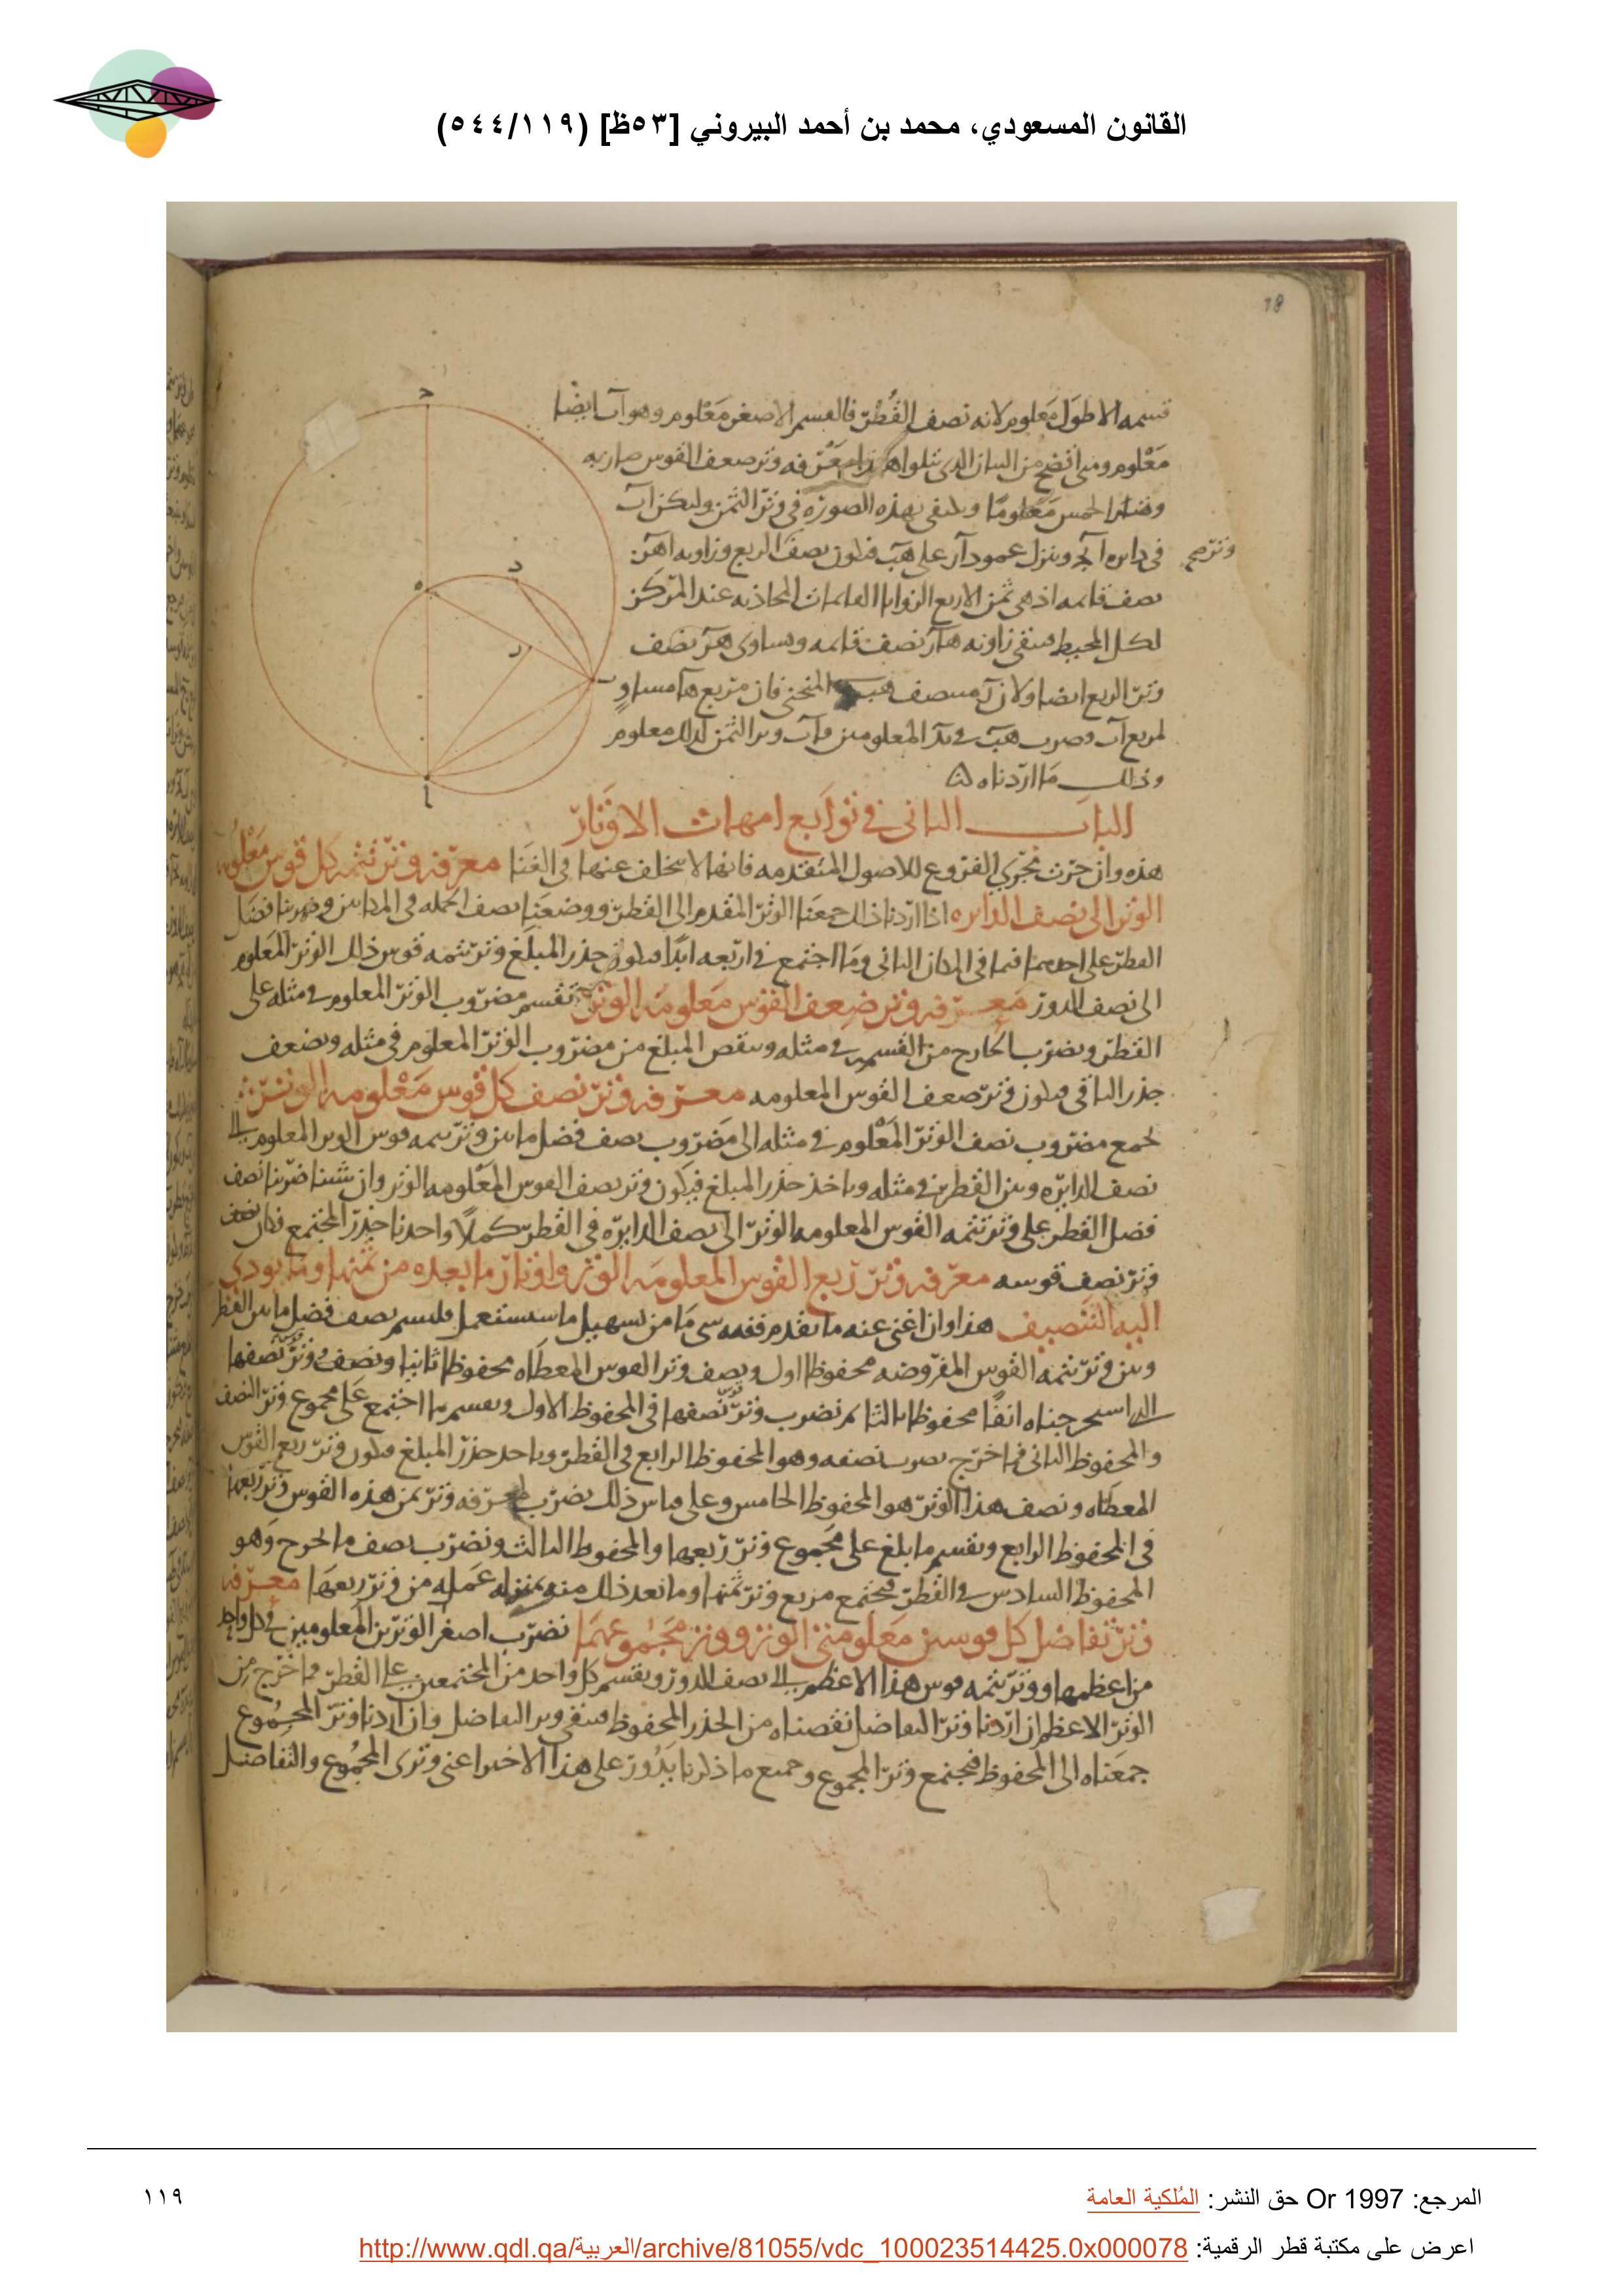 القانون المسعودي، محمد بن أحمد البيروني [٥٣ظ] (٥٤٤/١١٩)
قسمه الاطول معلوم لانه نصف القطر فالقسم الاصغر معلوم وهو آب ايضا
معلوم ومتى اتضح من البيان الذى يتلوا هذا معرفه وتر ضعف القوس صار به
وتر الخمس معلوما وليبقى بهذه الصوره فى وتر الثمن وليكن آب
فى دايره آبج وننزل عمود آر على هب فيكون نصف الربع وزاويه اهر
وتر صح
نصف قايمه اذ هى ثمن الاربع الزوايا القايمات المحاذيه عند المركز
لكل المحيط فتبقى زاويه هآر نصف قايمه ويساوى هر نصف
وتر الربع ايضا ولان د منتصف هب المنحنى فان مربع هآ مساوٍ
لمربع آب وضرب هب فى بد المعلومين فآب وتر الثمن لذلك معلوم
وذلك ما اردناه
الباب الثانى فى توابع امهات الاوتار
هذه وان جرت مجرى الفروع للاصول المتقدمه فانها لا تتخلف عنها فى الغنا معرفه وتر تتمه كل قوس معلومه
الوتر الى نصف الدايره اذا اردنا ذلك جمعنا الوتر المقدم الى القطر ووضعنا نصف الجمله فى المكانين وضربنا فضل
القطر على احدهما فيما فى المكان الثانى وما اجتمع فى اربعه ابدا فيكون جذر المبلغ وتر تتمه قوس ذلك الوتر المعلوم
الى نصف الدور معرفه وتر ضعف القوس معلومه الوتر نقسم مضروب الوتر المعلوم فى مثله على
القطر ونضرب الخارج من القسم فى مثله وننقص المبلغ من مضروب الوتر المعلوم فى مثله ونضعف
جذر الباقى فيكون وتر ضعف القوس المعلومه معرفه وتر نصف كل قوس معلومه الوتر
نجمع مضروب نصف الوتر المعلوم فى مثله الى مضروب نصف فضل ما بين وتر تتمه قوس الوتر المعلوم الى
نصف الدايره وبين القطر فى مثله وناخذ جذر المبلغ فيكون وتر نصف القوس المعلومه الوتر وان شئنا ضربنا نصف
فضل القطر على وتر تتمه القوس المعلومه الوتر الى نصف الدايره فى القطر كملا واخذنا جذر المجتمع فكان
وتر نصف قوسه معرفه وتر ربع القوس المعلومه الوتر واوتار ما بعده من ثمنها وما يودى
اليه التنصيف هذا وان اغنى عنه ما تقدم ففيه شى ما من تسهيل ما سيستعمل فليسم نصف فضل ما بين القطر
وبين وتر تتمه القوس المفروضه محفوظا اول ونصف وتر القوس المعطاه محفوظا ثانيا ونصف وتر نصفها
الذى استخرجناه انفا محفوظا ثالثا ثم نضرب وتر نصفها فى المحفوظ الاول ونقسم ما اجتمع على مجموع وتر النصف
والمحفوظ الثانى فما خرج نضرب نصفه وهو المحفوظ الرابع فى القطر وناخذ جذر المبلغ فيكون وتر ربع القوس
المعطاه ونصف هذا الوتر هو المحفوظ الخامس وعلى قياس ذلك نضرب لمعرفه وتر ثمن هذه القوس وتر ربعها
فى المحفوظ الرابع ونقسم ما بلغ على مجموع وتر ربعها والمحفوظ الثالث ونضرب نصف ما يخرج وهو
المحفوظ السادس فى القطر فيجتمع مربع وتر ثمنها وما بعد ذلك منه بمنزله عمله من وتر ربعها معرفه
وتر تفاضل كل قوسين معلومتى الوتر ووتر مجموعهما نضرب اصغر الوترين المعلومين فى كل واحد
من اعظمهما ووتر تتمه قوس هذا الاعظم الى نصف الدور ونقسم كل واحد من المجتمعين على القطر فما خرج من
الوتر الاعظم ان اردنا وتر التفاضل نقصناه من الجذر المحفوظ فيبقى وتر التفاضل وان اردنا وتر المجموع
جمعناه الى المحفوظ فيجتمع وتر المجموع وجميع ما ذكرنا يدور على هذا الاخير اعنى وترى المجموع والتفاضل
المرجع: Or 1997 حق النشر: المُلكية العامة
١١٩
اعرض على مكتبة قطر الرقمية: http://www.qdl.qa/العربية/archive/81055/vdc_100023514425.0x000078